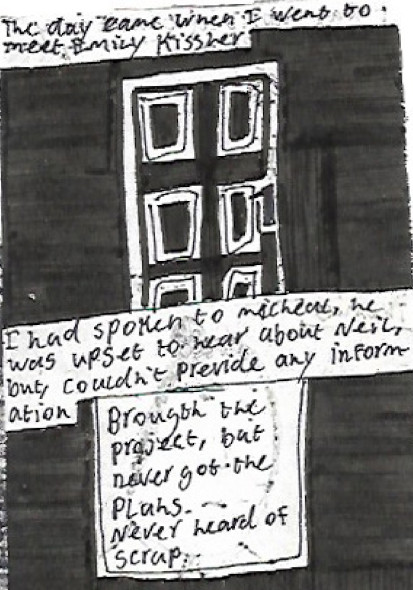 The day came when I went to
meet Emily Kissner
I had spoken to micheal, he
was upset to hear about Neil,
but couldn't previde any inform
ation
Brougth the
project, but
never got the
Plans.
Never heard of
scrap.